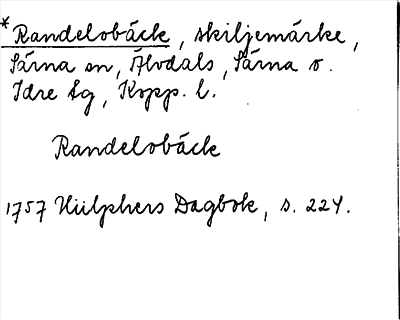 *Randelsbäck, skiljemärke,
Särna sn, Älvdals, Särna o.
Idre tg, Kopp. l.
Randelsbäck
1757 Hülphers Dagbok, s. 224.